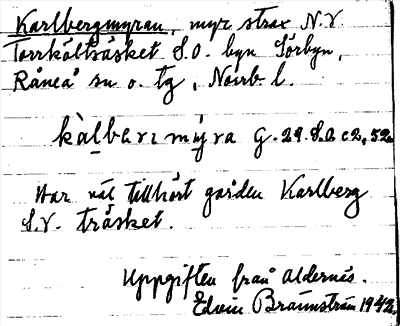 Karlbergmyran, myr strax N.V.
Torrkölträsket S.O. byn Sörbyn,
Råneå sn o. tg, Norrb. l.
kàlbærımy̱ra G. 29. S.O. c2, 52.
Har väl tillhört gården Karlberg
S.V. träsket.
Uppgiften från Aldernäs.
Edvin Brännström 1942.